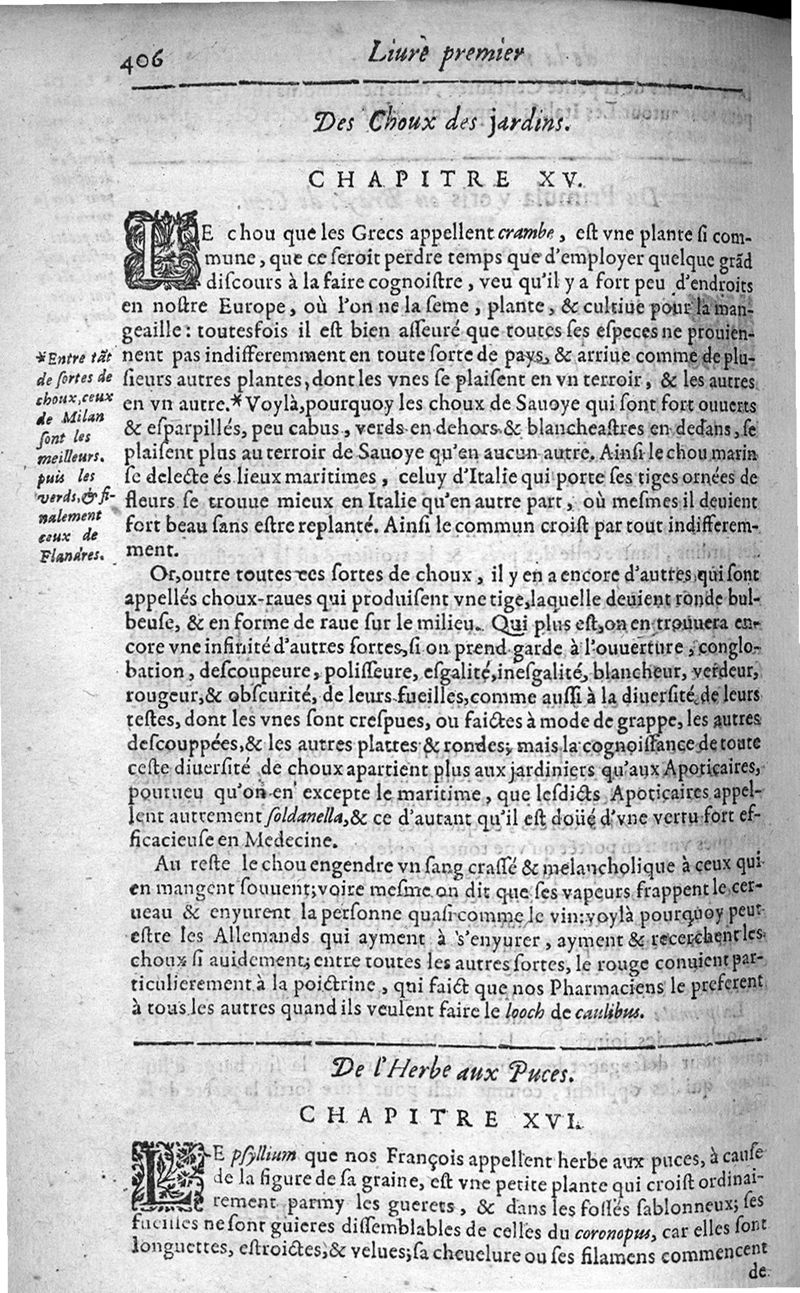 406
Liure premier
Des Choux des jardins.
CHAPITRE XV.
LE chou que les Grecs appellent crambe, est vne plante si com-
mune, que ce seroit perdre temps que d'employer quelque grãd
discours à la faire cognoistre, veu qu'il y a fort peu d'endroits
en nostre Europe, où l'on ne la seme, plante, & cultiue pour la man-
geaille: toutesfois il est bien asseuré que toutes ses especes ne prouien-
nent pas indifferemment en toute sorte de pays, & arriue comme de plu-
sieurs autres plantes, dont les vnes se plaisent en vn terroir, & les autres
en vn autre.* Voylà, pourquoy les choux de Sauoye qui sont fort ouuerts
& esparpillés, peu cabus, verds en dehors & blancheastres en dedans, se
plaisent plus au terroir de Sauoye qu'en aucun autre. Ainsi le chou marin
se delecte és lieux maritimes, celuy d'Italie qui porte ses tiges ornées de
fleurs se trouue mieux en Italie qu'en autre part, où mesmes il deuient
fort beau sans estre replanté. Ainsi le commun croist par tout indifferem-
ment.
*Entre tãt
de sortes de
choux, ceux
de Milan
sont les
meilleurs.
puis les
verds, & fi-
nalement
ceux de
Flandres.
Or, outre toutes ces sortes de choux, il y en a encore d'autres qui sont
appellés choux-raues qui produisent vne tige, laquelle deuient ronde bul-
beuse, & en forme de raue sur le milieu. Qui plus est, on en trouuera en-
core vne infinité d'autres sortes, si on prend garde à l'ouuerture, conglo-
bation, descoupeure, polisseure, esgalité, inesgalité, blancheur, verdeur,
rougeur, & obscurité, de leurs fueilles, comme aussi à la diuersité de leurs
testes, dont les vnes sont crespues, ou faictes à mode de grappe, les autres
descouppées, & les autres plattes & rondes; mais la cognoissance de toute
ceste diuersité de choux apartient plus aux jardiniers qu'aux Apoticaires,
pourueu qu'on en excepte le maritime, que lesdicts Apoticaires appel-
lent autrement soldanella, & ce d'autant qu'il est doüé d'vne vertu fort ef-
ficacieuse en Medecine.
Au reste le chou engendre vn sang crassé & melancholique à ceux qui
en mangent souuent; voire mesme on dit que ses vapeurs frappent le cer-
ueau & enyurent la personne quasi comme le vin: voylà pourquoy peut
estre les Allemands qui ayment à s'enyurer, ayment & recerchent les
choux si auidement; entre toutes les autres sortes, le rouge conuient par-
ticulierement à la poictrine, qui faict que nos Pharmaciens le preferent
à tous les autres quand ils veulent faire le looch de caulibus.
De l'Herbe aux Puces.
CHAPITRE XVI.
LE psyllium que nos François appellent herbe aux puces, à cause
de la figure de sa graine, est vne petite plante qui croist ordinai-
rement parmy les guerets, & dans les fossés sablonneux; ses
fueilles ne sont guieres dissemblables de celles du coronopus, car elles sont
longuettes, estroictes, & velues; sa cheuelure ou ses filamens commencent
de